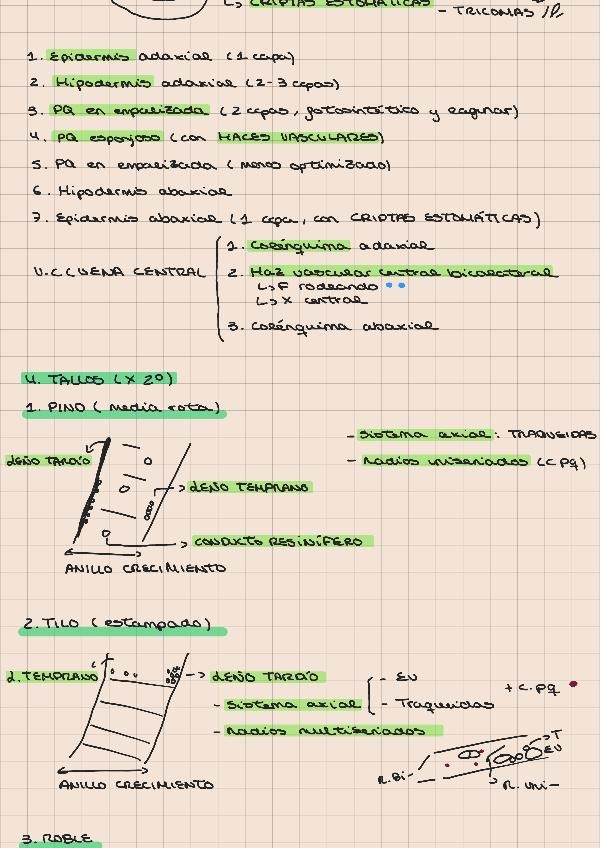 ↳ CRIPTAS ESTOMÁTICAS
- TRICOMAS
1. Epidermis adaxial (1 capa)
2. Hipodermis adaxial (2-3 capas)
3. PQ en empalizada (2 capas, fotosintético y
4. PQ esponjoso (con HACES VASCULARES)
5. PQ en empalizada (menos optimizado)
6. Hipodermis abaxial
7. Epidermis abaxial (1 capa, con CRIPTAS ESTOMÁTICAS)
1. Colénquima adaxial
CENTRAL
2. Haz vascular central bicolateral
↳ F rodeando
↳ X central
3. Colénquima abaxial
4. TALLOS (X 2º)
1. PINO (media rota)
- Sistema axial: TRAQUEIDAS
LEÑO TARDÍO
- Radios uniseriados (c pq)
LEÑO TEMPRANO
CONDUCTO RESINÍFERO
ANILLO CRECIMIENTO
2. TILO (estampado)
L. TEMPRANO
LEÑO TARDÍO
- EV
+ C. pq
- Sistema axial
- Traqueidas
- Radios multiseriados
T
EV
R. Bi-
R. Uni-
ANILLO CRECIMIENTO
3. ROBLE